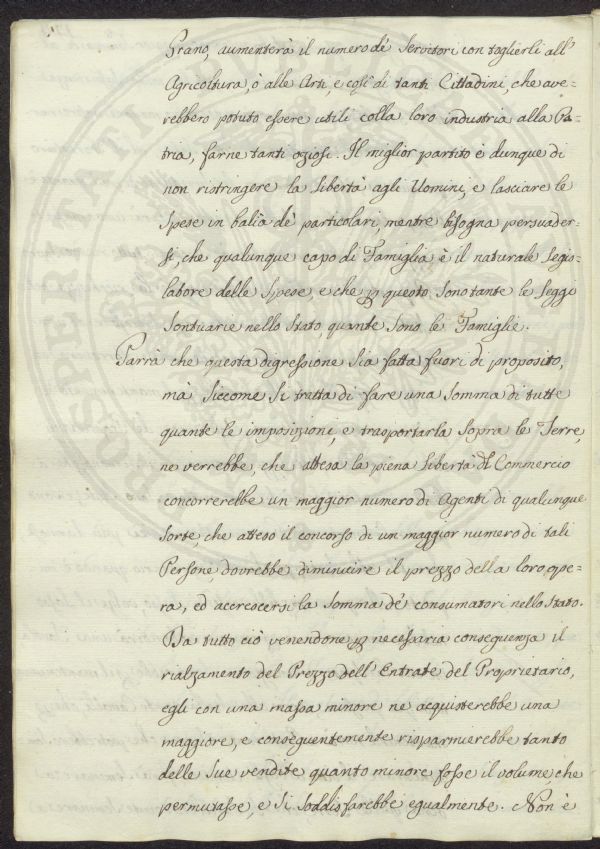 Grano, aumenterà il numero dè Servitori con toglierli all'
Agricoltura, ò alle Arti, e così di tanti Cittadini, che ave=
rebbero potuto essere utili colla loro industria alla Pa=
tria, farne tanti oziosi. Il miglior partito è dunque di
non ristringere la libertà agli Uomini, e lasciare le
Spese in balìa dè particolari, mentre bisogna persuader=
si, che qualunque capo di Famiglia è il naturale Legis=
latore delle Spese, e che p questo sono tante le Leggi
Sontuarie nello Stato, quante sono le Famiglie.
Parrà che questa digressione sia fatta fuori di proposito,
mà siccome si tratta di fare una somma di tutte
quante le imposizioni, e trasportarla sopra le Terre,
ne verrebbe, che attesa la piena libertà del Commercio
concorrerebbe un maggior numero di Agenti di qualunque
sorte, che atteso il concorso di un maggior numero di tali
Persone dovrebbe diminuire il prezzo della loro ope=
ra, ed accrescersi la somma de' consumatori nello Stato.
Da tutto ciò venendone p necessaria conseguenza il
rialzamento del Prezzo dell'Entrate del Proprietario,
egli con una massa minore ne acquisterebbe una
maggiore, e conseguentemente risparmierebbe tanto
delle sue vendite quanto minore fosse il volume, che
permutasse, e si soddisfarebbe egualmente. Non è